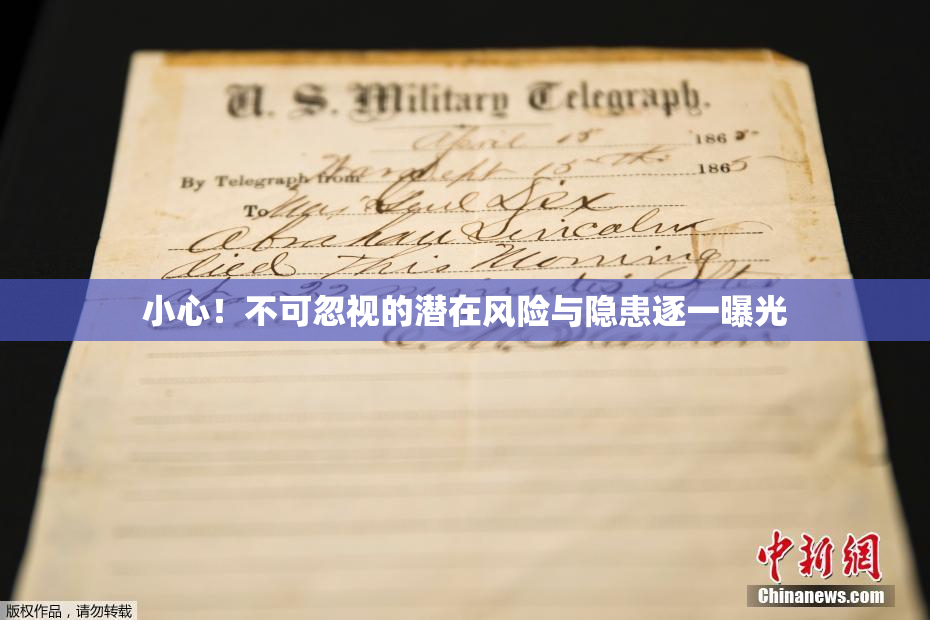 U. S. Military Telegraph.
April 15 1865
By Telegraph from War Dept 15th 1865
To Maj Genl Dix
Abraham Lincoln
died This Morning
at 22 minutes after
小心！不可忽视的潜在风险与隐患逐一曝光
E. M. Stanton
中新網
Chinanews.com
版权作品，请勿转载